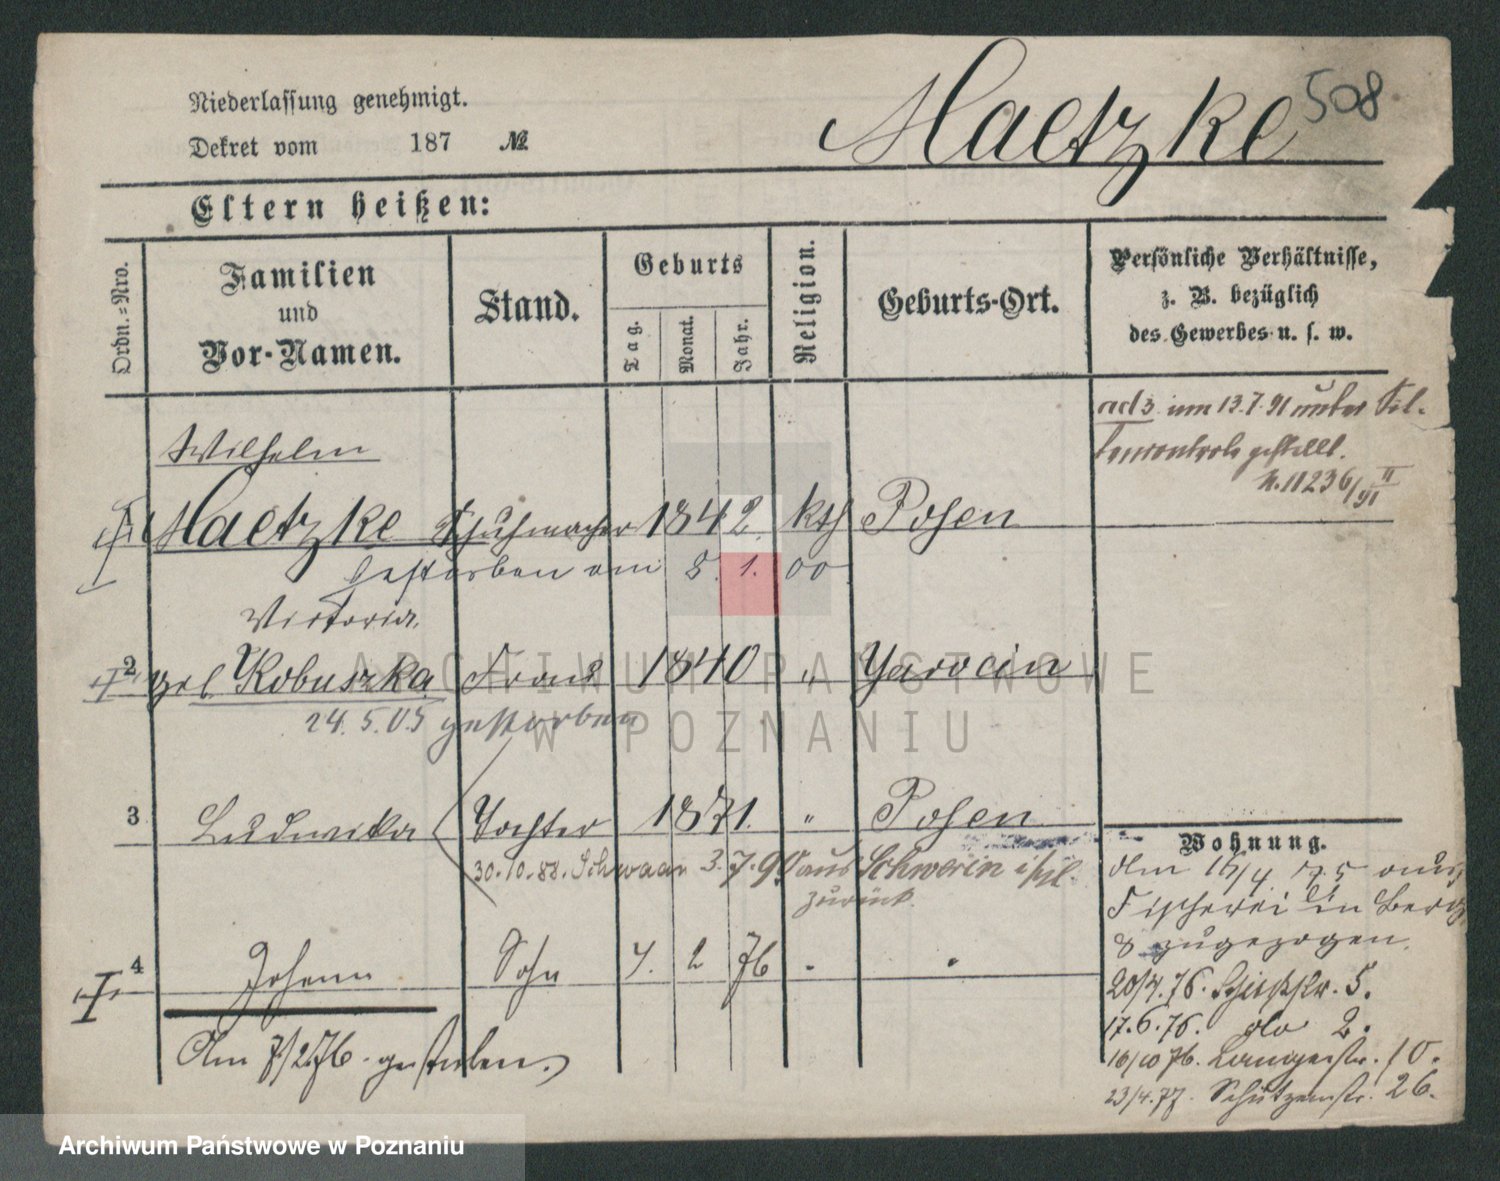 508
Niederlassung genehmigt.
Maetzke
Dekret vom 187 №
Eltern heißen:
Ordn.=Nro.
Familien
und
Vor-Namen.
Stand.
Geburts
Tag.
Monat.
Jahr.
Religion.
Geburts-Ort.
Persönliche Verhältnisse,
z. B. bezüglich
des Gewerbes u. s. w.
ad 3 am 13.7.91 unter
gestellt.
N. 11236/91 II
Wilhelm
1 Maetzke Schuhmacher 1842. kth Posen
Gestorben am 8. 1. 00
Victoria
2 geb Kobuszka Frau 1840 " Yarocin
24.5.05 gestorben
3 Ludwika Tochter 1871. " Posen
30.10.88. Schwaan 3.7.90 aus Schwerin
zurück.
4 Johann Sohn 7. 2 76 " "
Am 7/2.76. gestorben.
Wohnung.
Am 15/4 75 aus
Fischerei in Berg
8 zugezogen.
20/4.76. Schießstr. 5.
17.6.76. dto 2.
16/10 76. Langestr. 10.
23/4.77. Schützenstr. 26.
ARCHIWUM PAŃSTWOWE
W POZNANIU
Archiwum Państwowe w Poznaniu